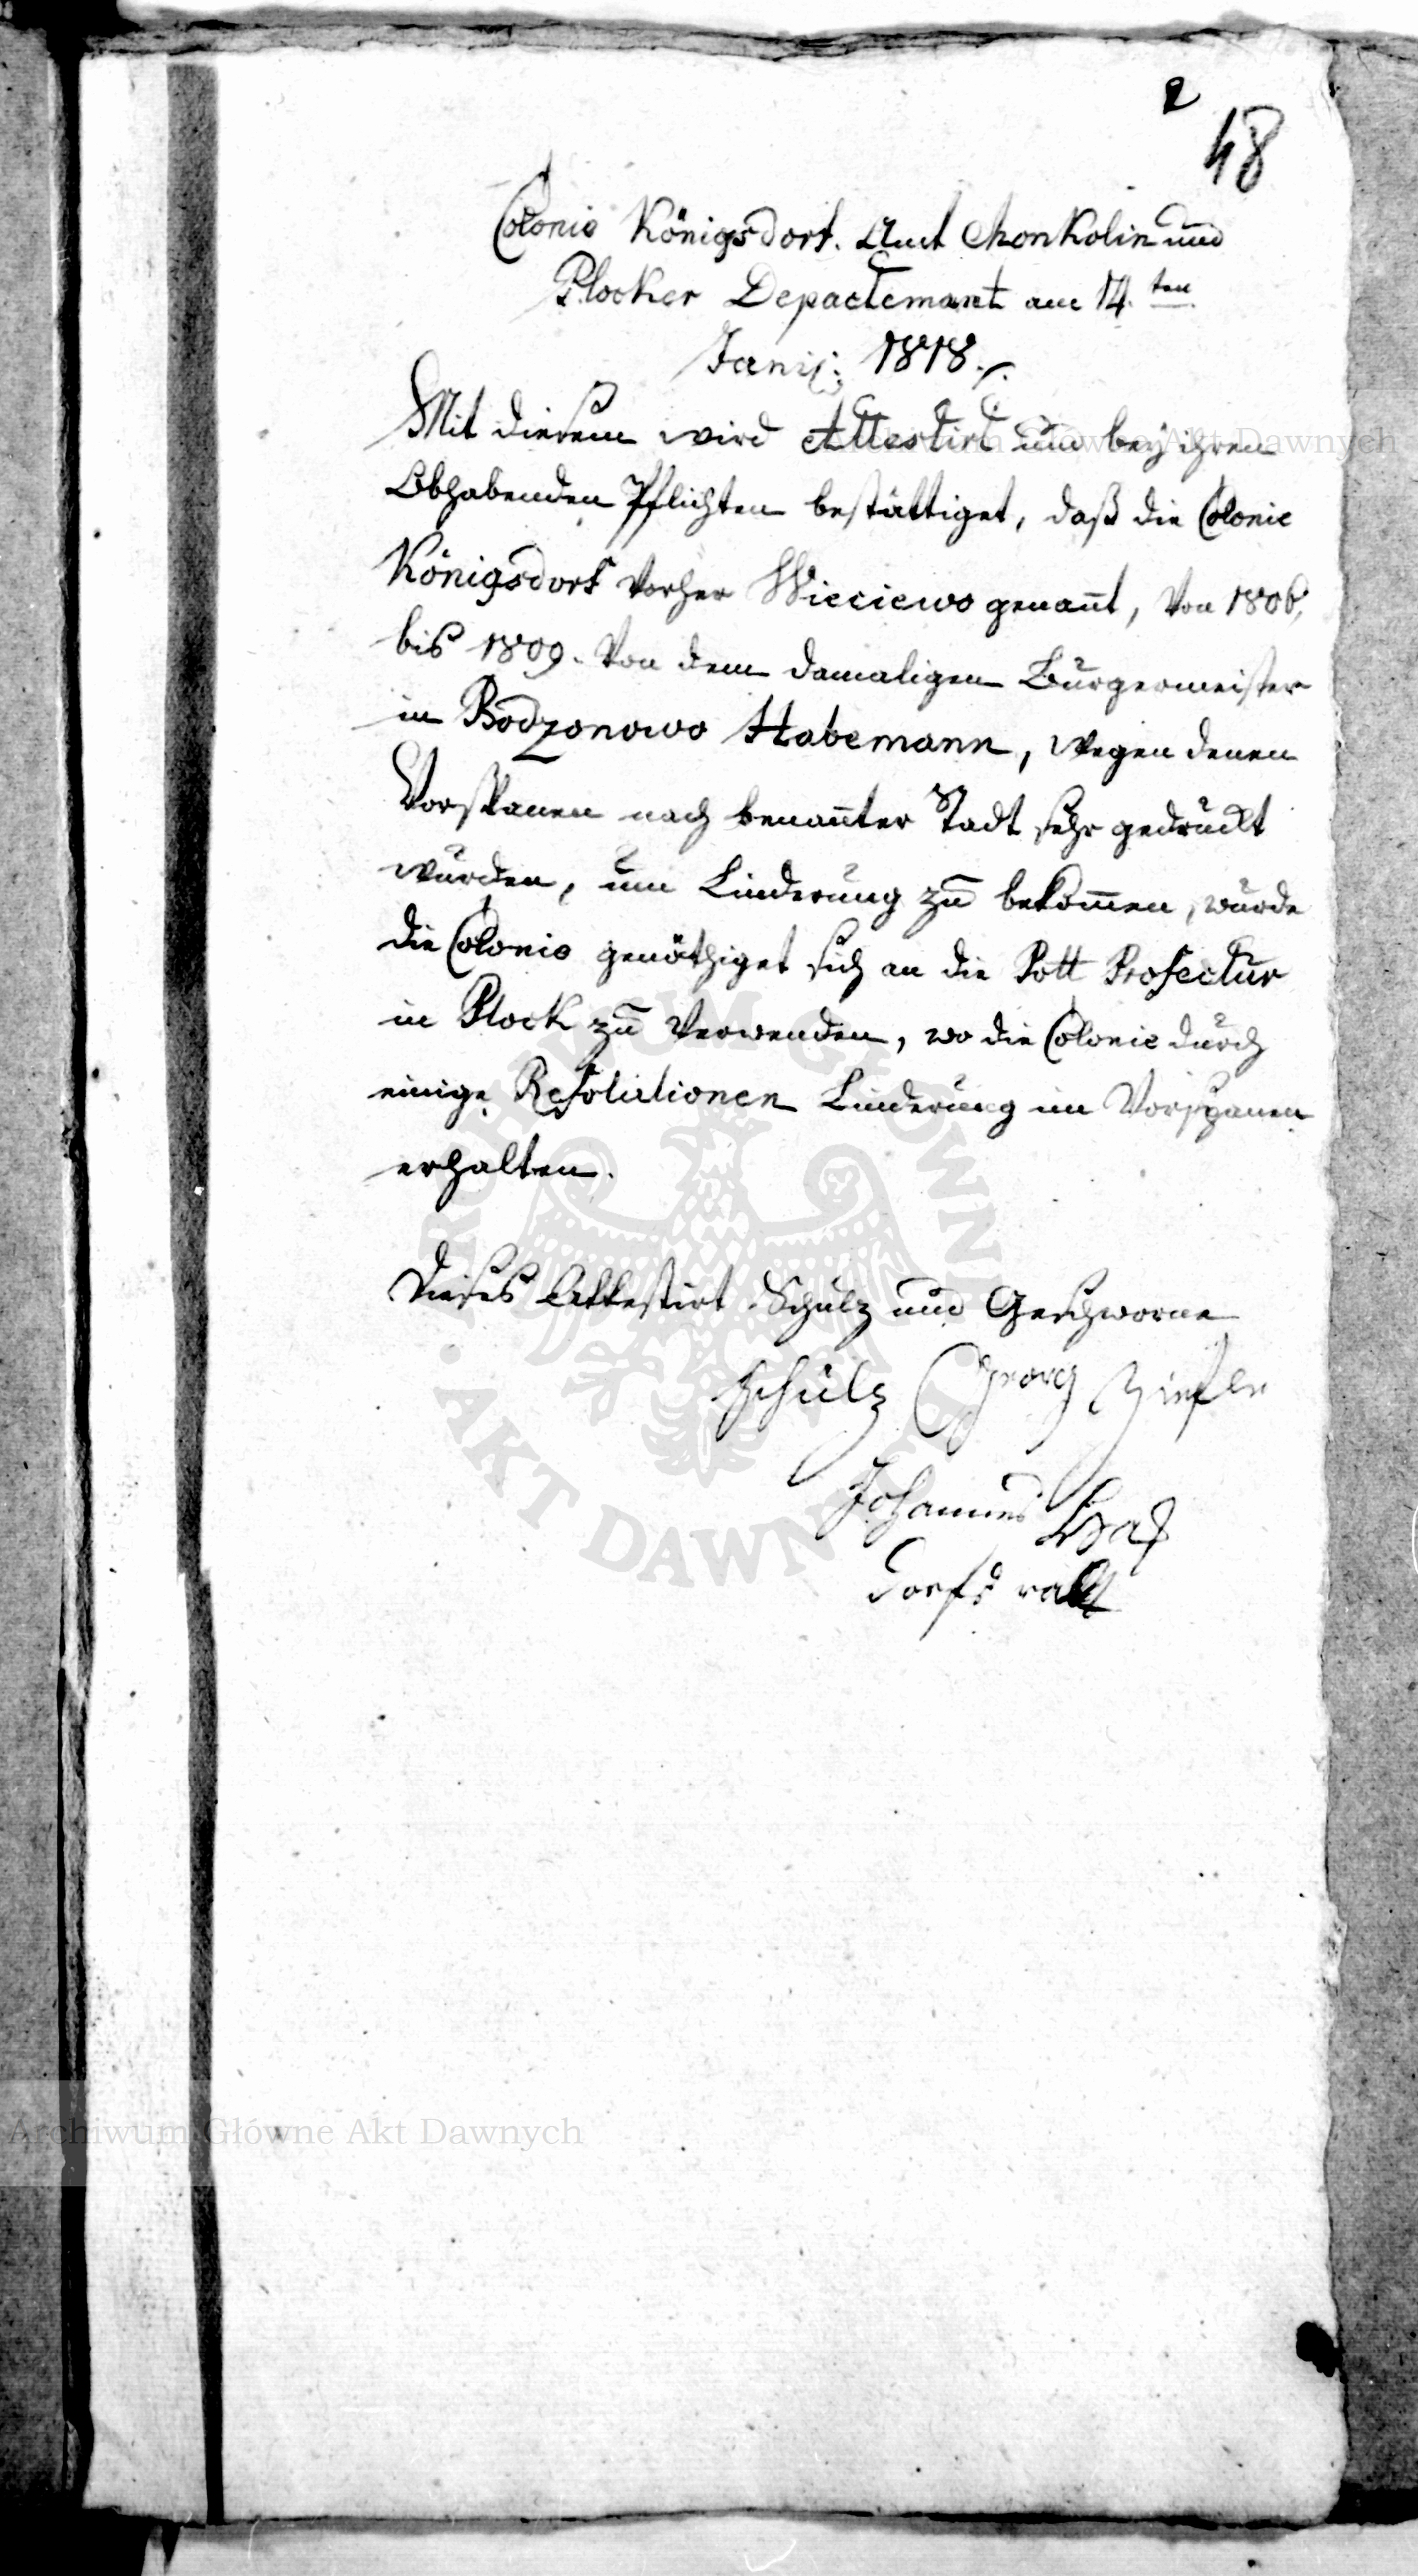 2
48
Colonie Königsdorf. Amt Monkolin und
Plocker Depactemant am 14.ten
Janij: 1818.
Mit diesem wird Attestirt und bey ihren
Obhabenden Pflichten bestättiget, daß die Colonie
Königsdorf vorher Wieciewo genan̄t, von 1806,
bis 1809. von dem damaligen Burgermeister
in Bodzonowo Habemann, wegen denen
Vorspanen nach benan̄ter Stadt sehr gedruckt
wurden, um Linderung zu bekom̄en, wurde
die Colonie genöthiget sich an die Pott Profectur
in Plock zu verwenden, wo die Colonie durch
einige Resolutionen Linderung im Vorspanen
erhalten.
Dieses Attestirt Schulz und Geschworne
Schulz Georg
Johannes
Dorfs
Archiwum Główne Akt Dawnych
Archiwum Główne Akt Dawnych
ARCHIWUM GŁÓWNE AKT DAWNYCH